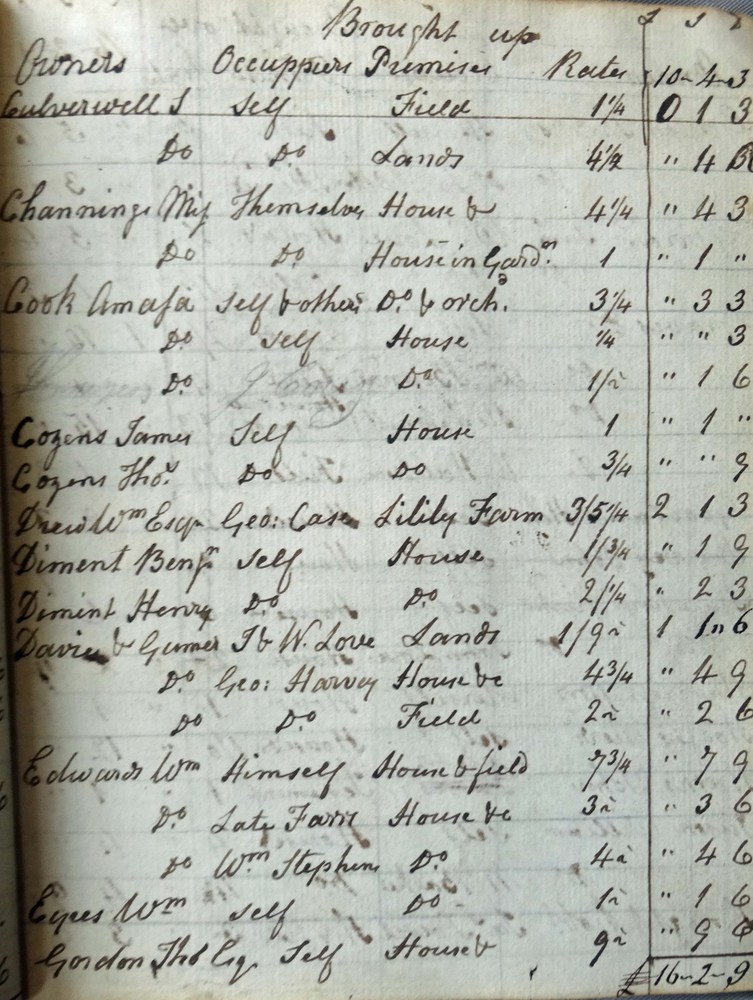 Brought up £ S D
Owners Occuppiers Premises Rates 10-4-3
Culverwell J Self Field 1 1/4 0 1 3
Do Do Lands 4 1/2 " 4
Channings Miss Themselves House & 4 1/4 " 4 3
Do Do House in Gardn. 1 " 1 "
Cook Amasa Self & others Do & orchd. 3 1/4 " 3 3
Do self House 1/4 " " 3
Do Do 1 1/2 " 1 6
Cozens James Self House 1 " 1 "
Cozens Thos. Do Do 3/4 " " 9
Drew Wm Esqr Geo: Case Lilily Farm 3/5 1/4 2 1 3
Diment Benjn self House 1 3/4 " 1 9
Diment Henry Do Do 2 1/4 " 2 3
Davie & Gumer J & W. Love Lands 1/9 1/2 1 1 " 6
Do Geo: Harvey House &c 4 3/4 " 4 9
Do Do Field 2 1/2 " 2 6
Edwards Wm Himself House & field 7 3/4 " 7 9
Do Late Farrs House &c 3 1/2 " 3 6
Do Wm Stephens Do 4 1/2 " 4 6
Eyres Wm self Do - 1 1/2 " 1 6
Gordon Thos Esq. Self House & 9 1/2 " 9
£ 16-2-9